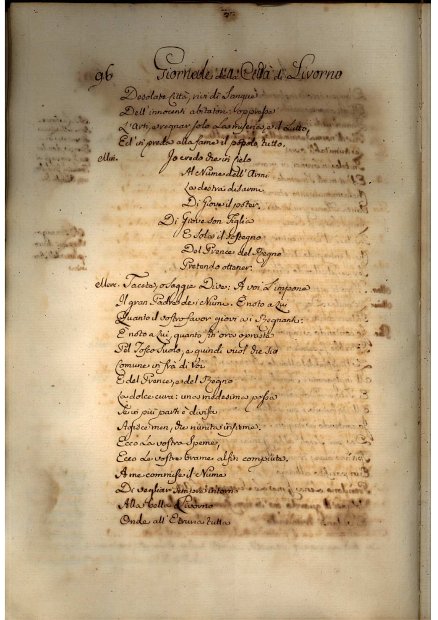 96 Giornale della Città di Livorno
Desolate Città, rivi di Sangue
Dell'innocenti abitatori oppressi
L'Arti, e regnar solo La miseria, e il Lutto,
Ed in preda alla fame il popolo tutto.
Min. Io credo che in Cielo
Al Nume dell'Armi
La destra disarmi
Di Giove il poter.
Di Giove son Figlia
E Solo il sostegno
Del Prence del Regno
Pretendo ottener.
Merc. Tacete, o Saggie Dive: A voi L'impone
Il gran Padre dei Numi. È noto a Lui
Quanto il vostro favor giovi ai Regnanti:
È noto a Lui, quanto fin ora opraste
Pel Tosco Suolo, e quindi vuol che sia
Comune in frà di Voi
E del Prence, e del Regno
La dolce cura: una medesima possa
Se in più parti è divisa
Agisce men, che riunita insieme.
Ecco La vostra Speme,
Ecco Le vostre brame alfin compiute.
A me commise il Nume
Di vegliar sempre intorno
Alla bella Livorno
Onde all'Etruria tutta